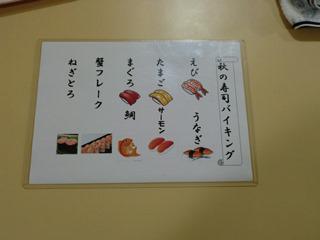 秋の寿司バイキング
えび
うなぎ
たまご
サーモン
まぐろ
鯛
蟹フレーク
ねぎとろ